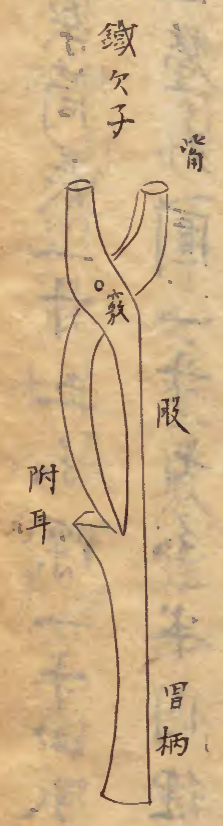 鐵欠子
嘴
竅
股
附耳
冒柄